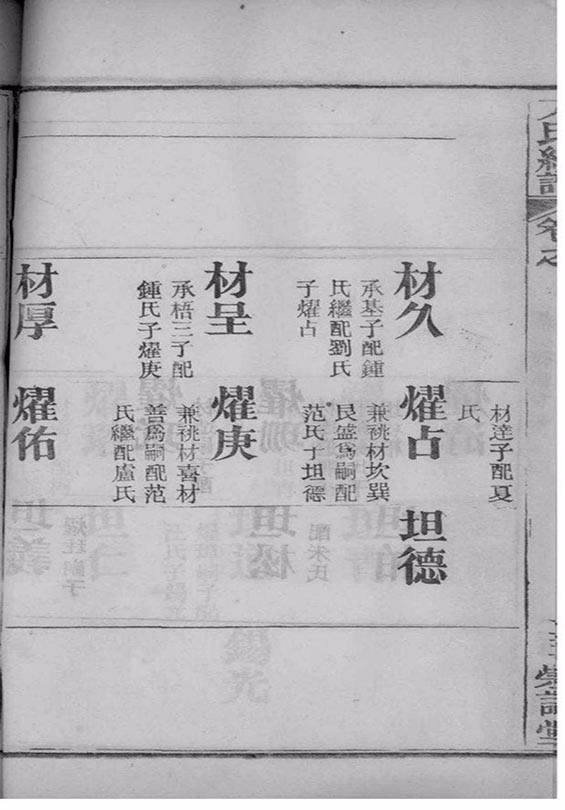 卷之
材達子配夏
氏
材久
承基子配鍾
氏繼配劉氏
子燿占
燿占
兼祧材坎巽
艮盛爲嗣配
范氏子坦德
坦德
材呈
承梧三子配
鍾氏子燿庚
燿庚
兼祧材喜材
善爲嗣配范
氏繼配盧氏
材厚
燿佑